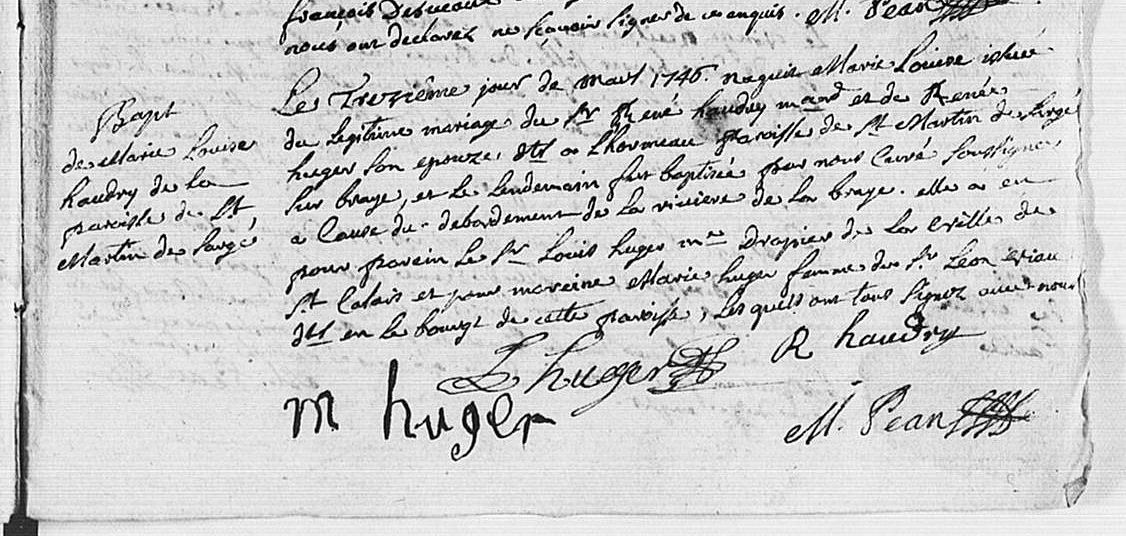 françois Desneaux
nous, ont declarez ne scauoir signer de ce enquis. M. Pean
Bapt
de Marie Louise
haudry de la
paroisse de St
Martin de Sargé
Le Trezième jour de mars 1746. naquit Marie Louise issüe
du Legitime mariage du Sr René haudry mard et de Renée
huger son epouze, dts a Lhormeau paroisse de St Martin de Sargé
sur braye, et le Lendemain fut baptisée par nous Curé soussigné
a Cause du debordement de la riviere de la braye. elle a eu
pour parein le Sr Louis huger me Drapier de la ville de
St Calais et pour mareine Marie huger famme du Sr Léon
dts en le bourgt de cette paroisse, Lesquels ont tous signez avec nous
L huger
R haudry
m huger
M. Pean